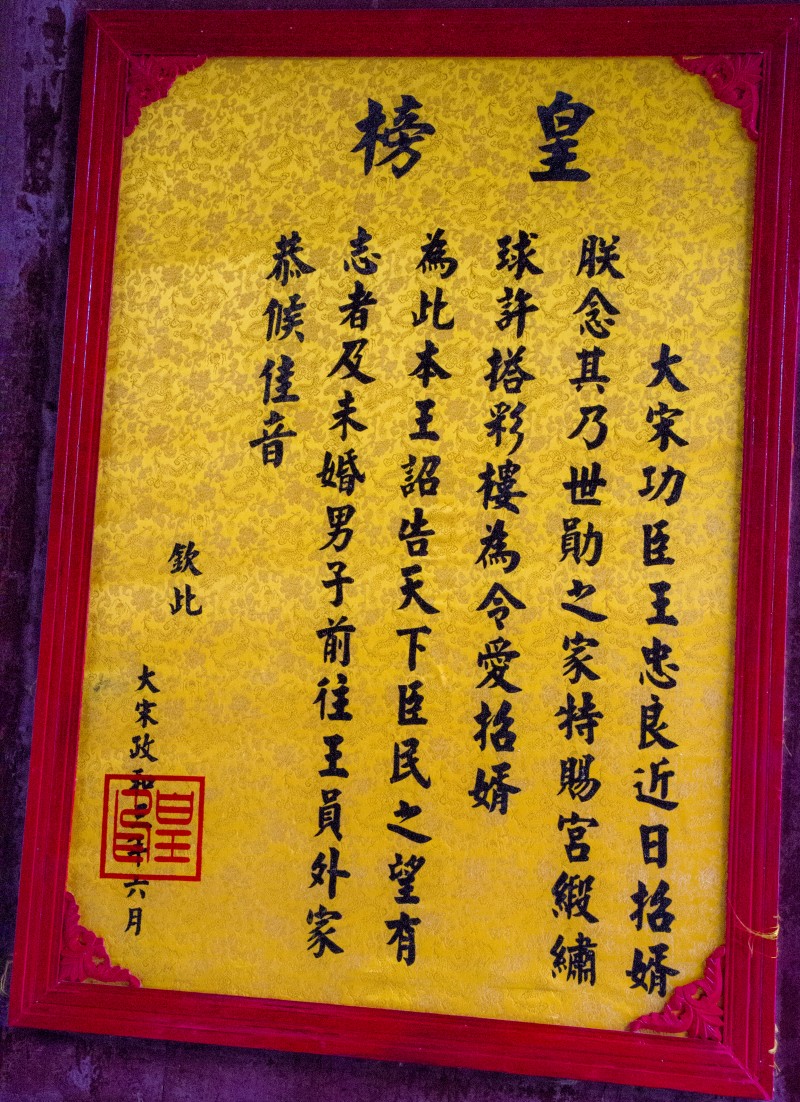 皇榜
大宋功臣王忠良近日招婿
朕念其乃世勛之家特賜宮緞繡
球許塔彩樓為令愛招婿
為此本王詔告天下臣民之望有
志者及未婚男子前往王員外家
恭候佳音
欽此
大宋政和年六月